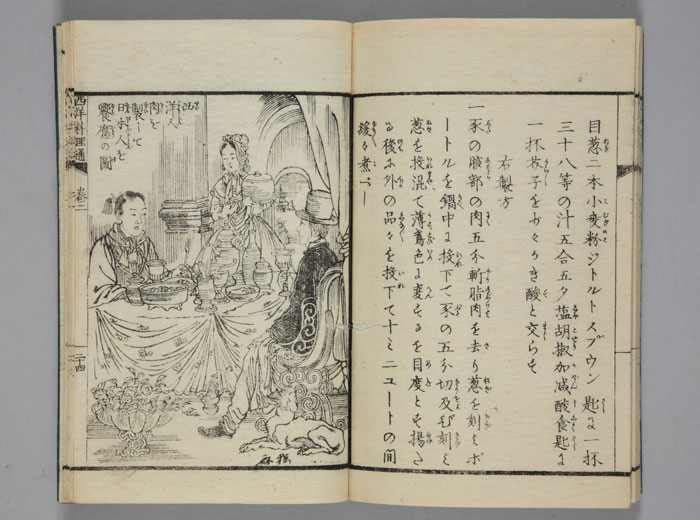 目葱二本小麦粉ジトルトスプウン匙に一杯
三十八等の汁五合五夕塩胡椒加減酸食匙に
一杯芥子を少々かき酸と交
右製方
一豕の股部の肉五分斬脂肉を去り葱を刻ミボ
ートルを鍋中に投下て豕の五分切及び刻ミ
葱を投混て薄鳶色に変ずるを目度とし揚た
る後に外の品々を投下て十ミニュートの間
緩々煮べし
西洋人
肉を
製して
日本人を
饗應の圖
西洋料理通 巻二 二十四